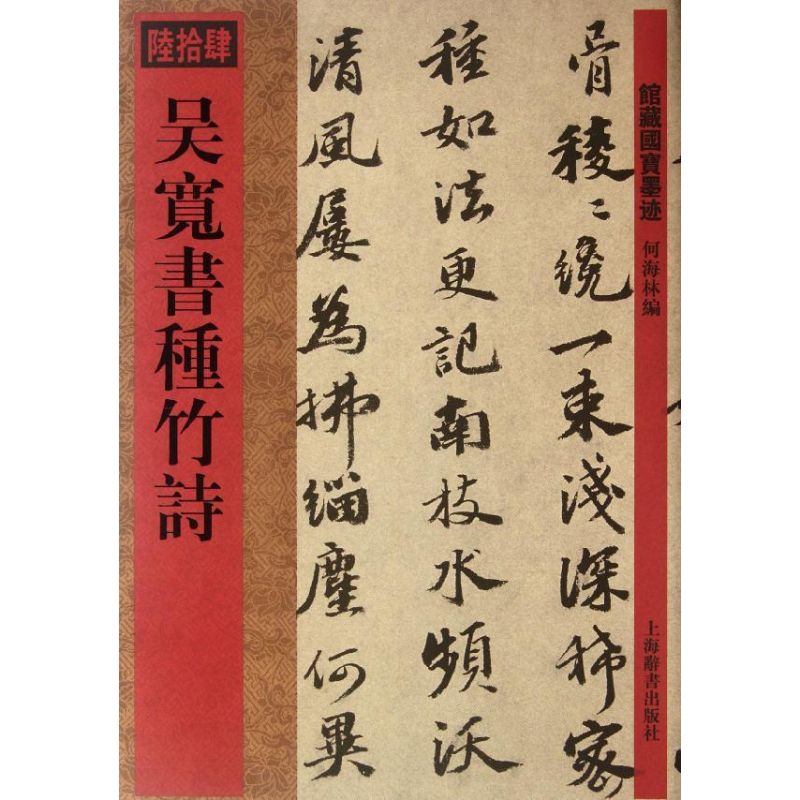 館藏國寶墨迹
何海林編
上海辭書出版社
骨稜〻繞一束淺深稀密
種如法更記南枝水頻沃
清風屡為拂緇塵何異
陸拾肆
吴寬書種竹詩